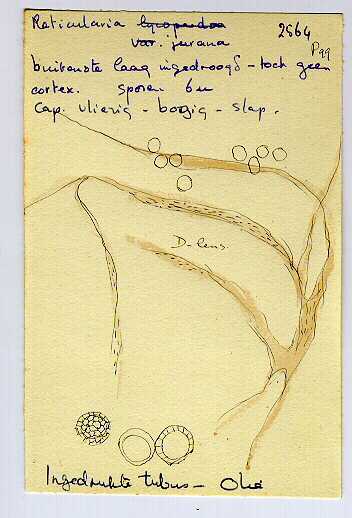 Reticularia lycoperdon 2564
var. jurana P99
buitenste laag ingedroogd - toch geen
cortex. sporen 6 u
Cap. vliezig - borzig - slap.
D-lens.
Ingedrukte tubus - Olie